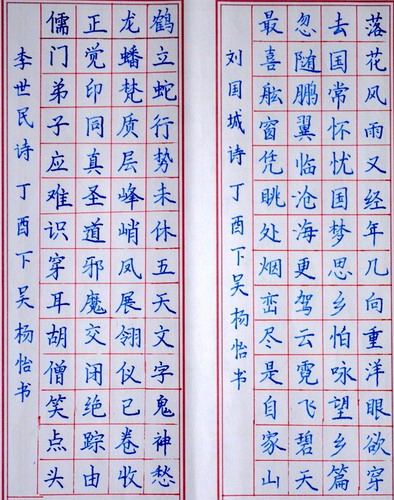 落花风雨又经年几向重洋眼欲穿
去国常怀忧国梦思乡怕咏望乡篇
忽随鹏翼临沧海更驾云霓飞碧天
最喜舷窗凭眺处烟峦尽是自家山
刘国城诗 丁酉下吴杨怡书
鹤立蛇行势未休五天文字鬼神愁
龙蟠梵质层峰峭凤展翎仪已卷收
正觉印同真圣道邪魔交闭绝踪由
儒门弟子应难识穿耳胡僧笑点头
李世民诗 丁酉下吴杨怡书